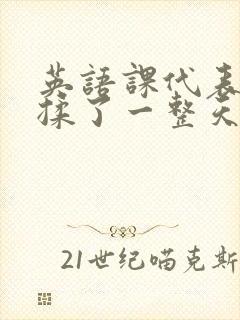 英語課代表
揉了一整天
21世纪喵克斯